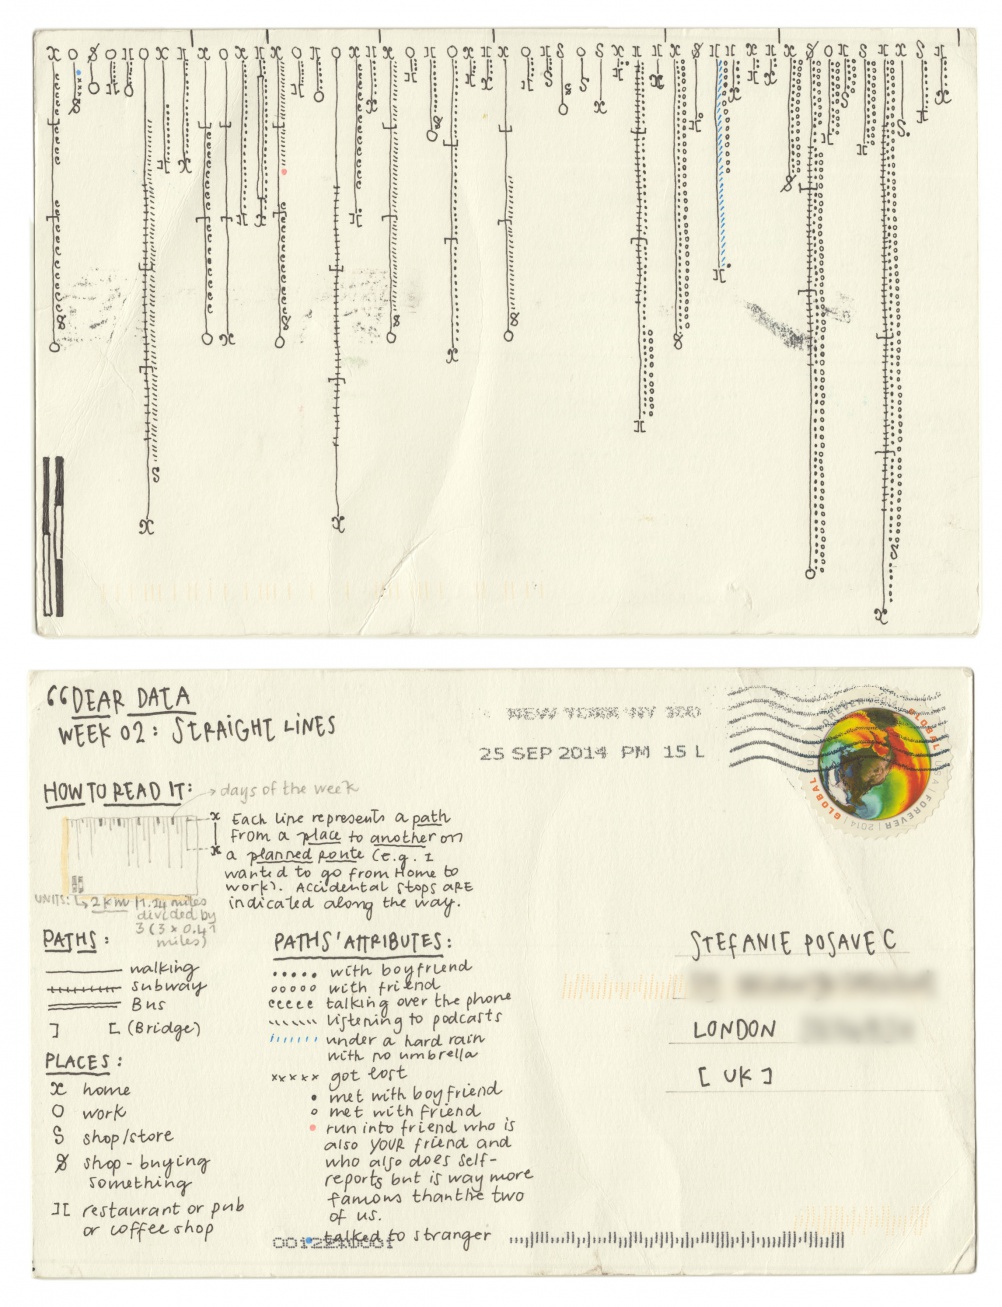 “DEAR DATA
WEEK 02: STRAIGHT LINES
NEW YORK NY 100
25 SEP 2014 PM 15 L
GLOBAL
GLOBAL
FOREVER | 2014
HOW TO READ IT:
days of the week
Each line represents a path
from a place to another on
a planned route (e.g. I
wanted to go from Home to
work). Accidental stops ARE
indicated along the way.
UNITS: 2 km | 1.24 miles
divided by
3 (3 x 0.41
miles)
PATHS:
walking
subway
Bus
] [ (Bridge)
PLACES:
home
O work
S shop/store
shop - buying
something
][ restaurant or pub
or coffee shop
PATHS' ATTRIBUTES:
with boyfriend
with friend
talking over the phone
listening to podcasts
under a hard rain
with no umbrella
xxxxx got lost
met with boyfriend
met with friend
run into friend who is
also YOUR friend and
who also does self-
reports but is way more
famous than the two
of us.
talked to stranger
STEFANIE POSAVEC
LONDON
[ UK ]